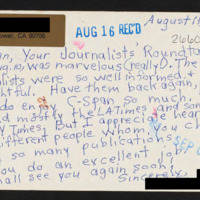 ower, CA 90706
AUG 16 REC'D
August 1
2060
n, Your Journalists' Roundta
was marvelous (really). The
lists were so well informed, &
htful. Have them back again,
do enjoy C-Span so much.
d mostly the LA Times and som
y Times. But I appreciate hear
different people whom you ch
so many publications.
SEP
You do an excellent jo
hall see you again soon!
Sincerely,